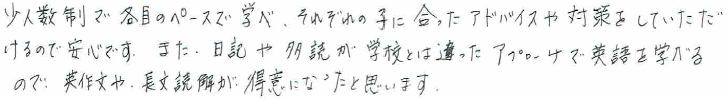 少人数制で各自のペースで学べ、それぞれの子に合ったアドバイスや対策をしていただ
けるので安心です。また、日記や多読が学校とは違ったアプローチで英語を学べる
ので、英作文や、長文読解が得意になったと思います。